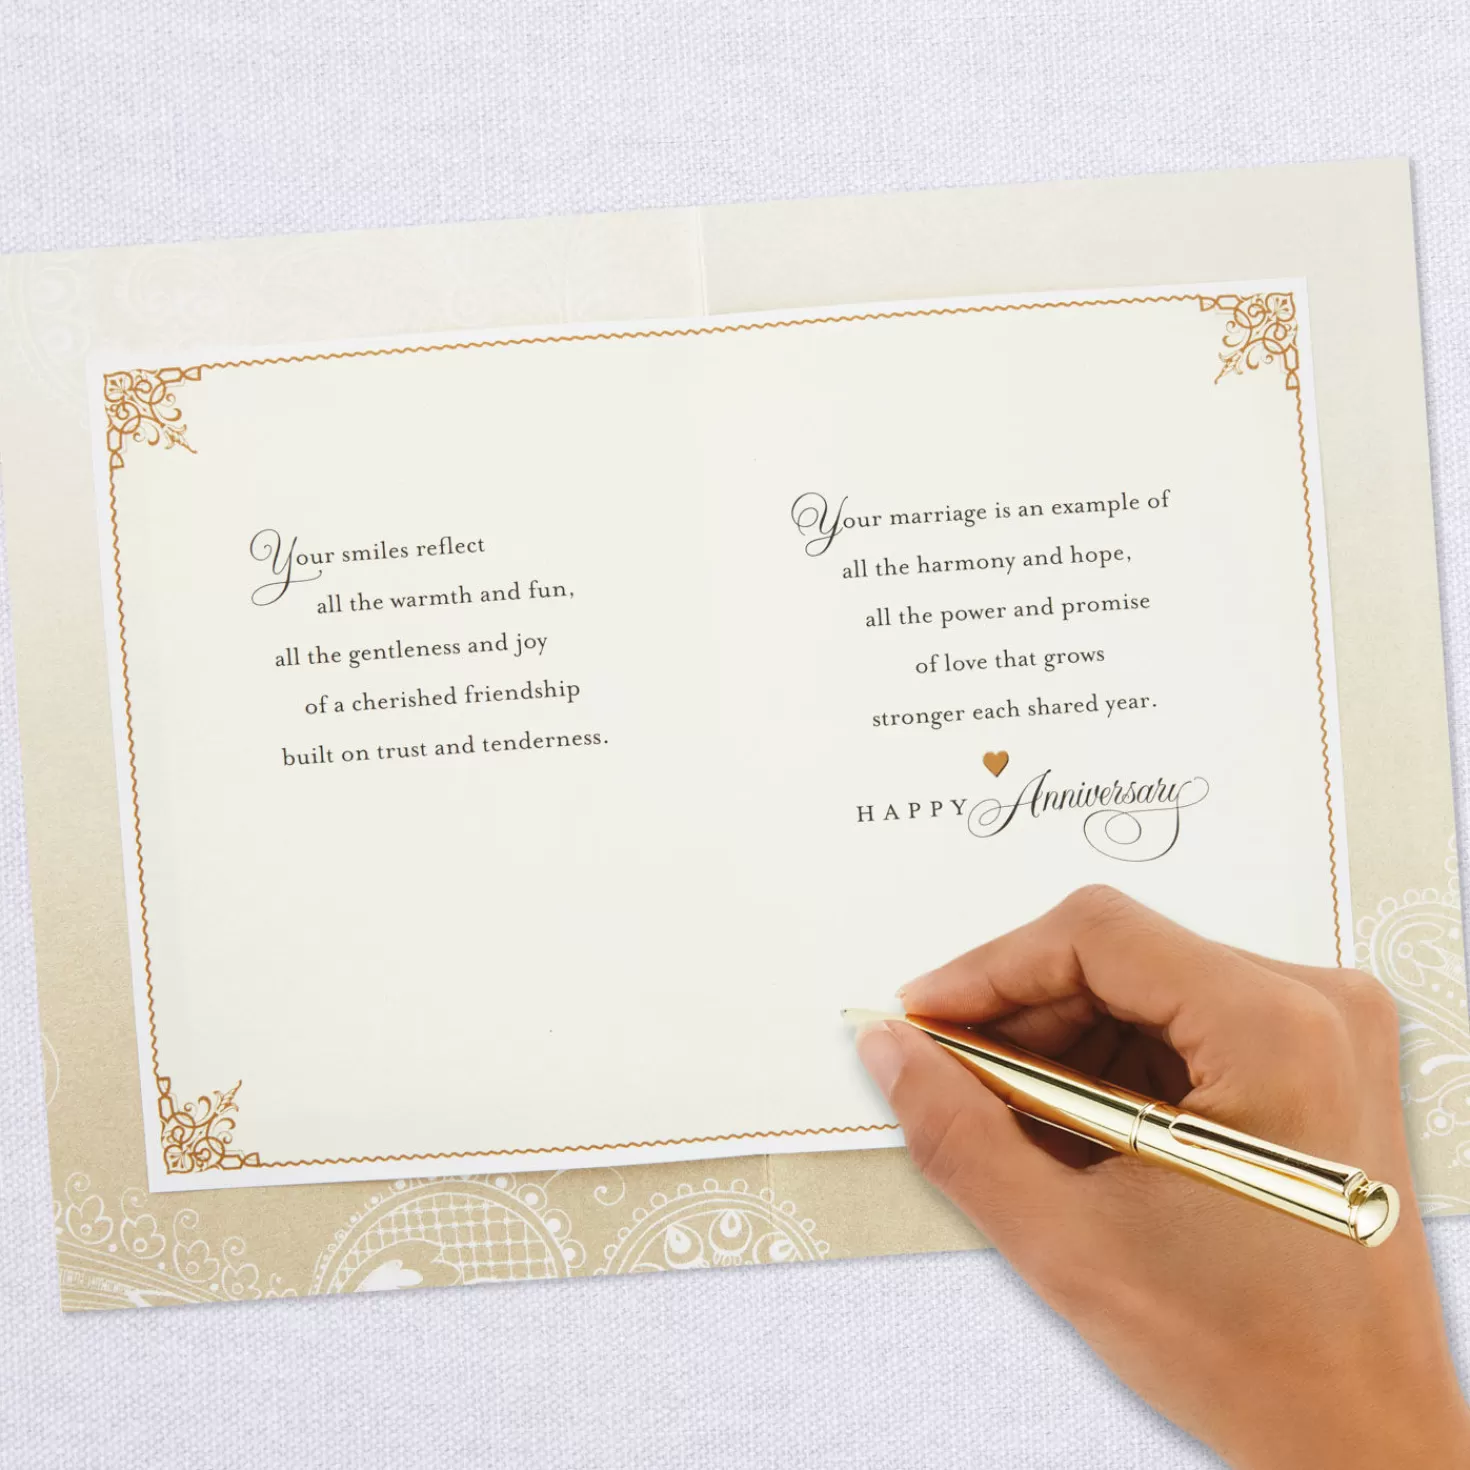 Your smiles reflect
all the warmth and fun,
all the gentleness and joy
of a cherished friendship
built on trust and tenderness.
Your marriage is an example of
all the harmony and hope,
all the power and promise
of love that grows
stronger each shared year.
HAPPY Anniversary